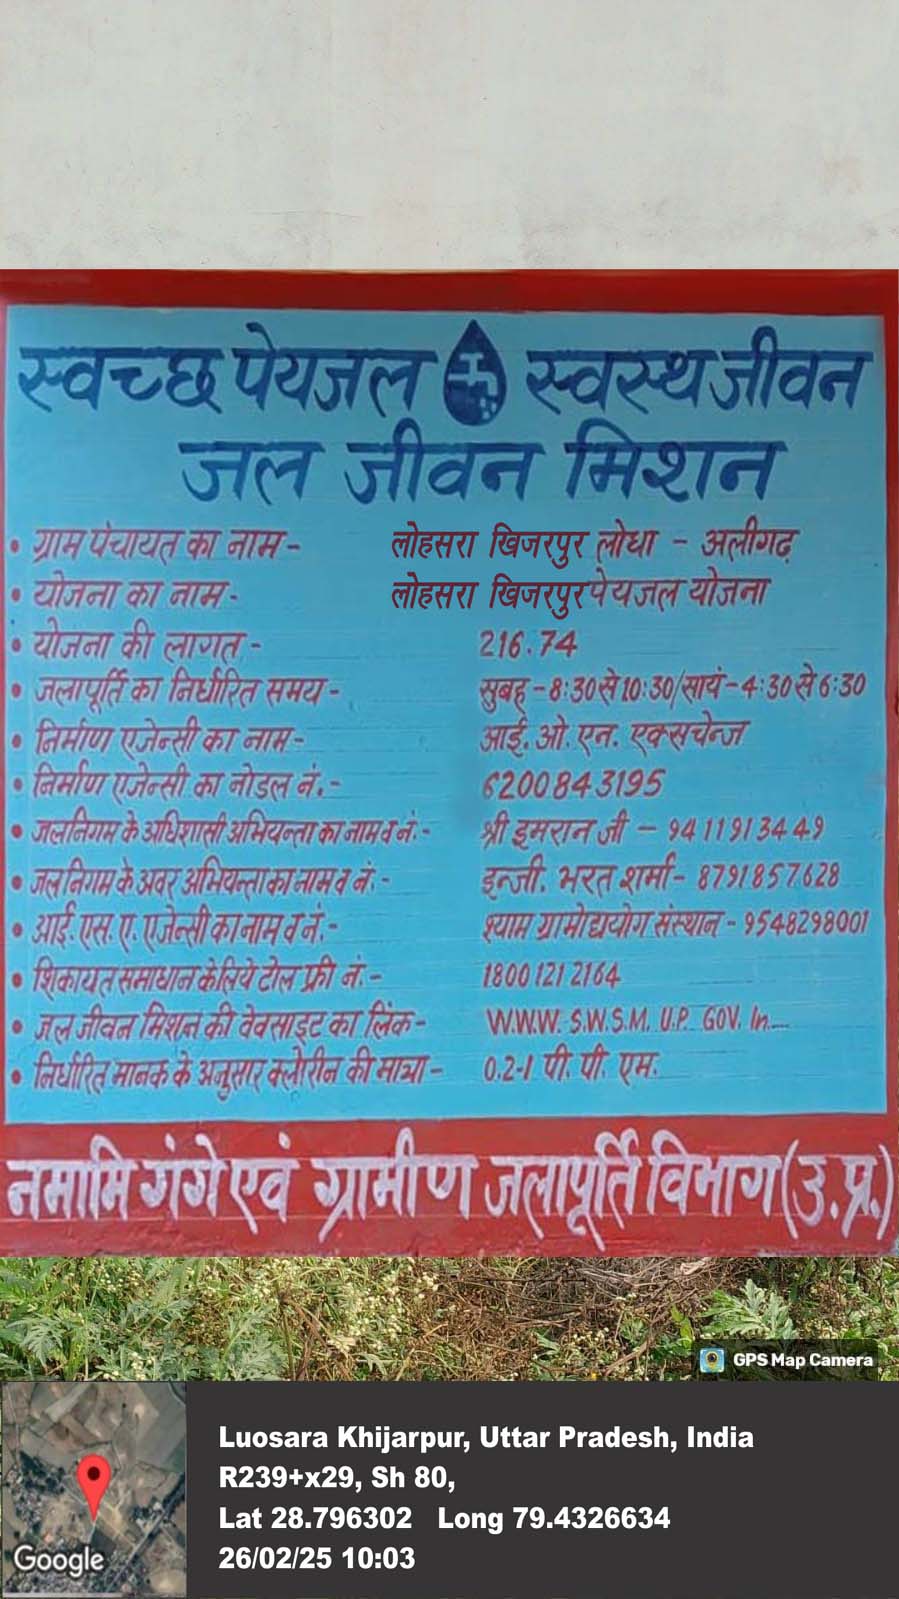 स्वच्छ पेयजल स्वस्थ जीवन
जल जीवन मिशन
• ग्राम पंचायत का नाम - लोहसरा खिजरपुर लोधा - अलीगढ़
• योजना का नाम - लोहसरा खिजरपुर पेयजल योजना
• योजना की लागत - 216.74
• जलापूर्ति का निर्धारित समय - सुबह - 8:30 से 10:30/सायं - 4:30 से 6:30
• निर्माण एजेन्सी का नाम - आई. ओ. एन. एक्सचेन्ज
• निर्माण एजेन्सी का नोडल नं. - 6200843195
• जलनिगम के अधिशासी अभियन्ता का नाम व नं. - श्री इमरान जी - 9411913449
• जलनिगम के अवर अभियन्ता का नाम व नं. - इन्जी. भरत शर्मा - 8791857628
• आई. एस. ए. एजेन्सी का नाम व नं. - श्याम ग्रामोद्ययोग संस्थान - 9548298001
• शिकायत समाधान के लिये टोल फ्री नं. - 1800 121 2164
• जल जीवन मिशन की वेवसाइट का लिंक - W.W.W. S.W.S.M. U.P. GOV. In....
• निर्धारित मानक के अनुसार क्लोरीन की मात्रा - 0.2-1 पी. पी. एम.
नमामि गंगे एवं ग्रामीण जलापूर्ति विभाग (उ.प्र.)
GPS Map Camera
Luosara Khijarpur, Uttar Pradesh, India
R239+x29, Sh 80,
Lat 28.796302 Long 79.4326634
26/02/25 10:03
Google